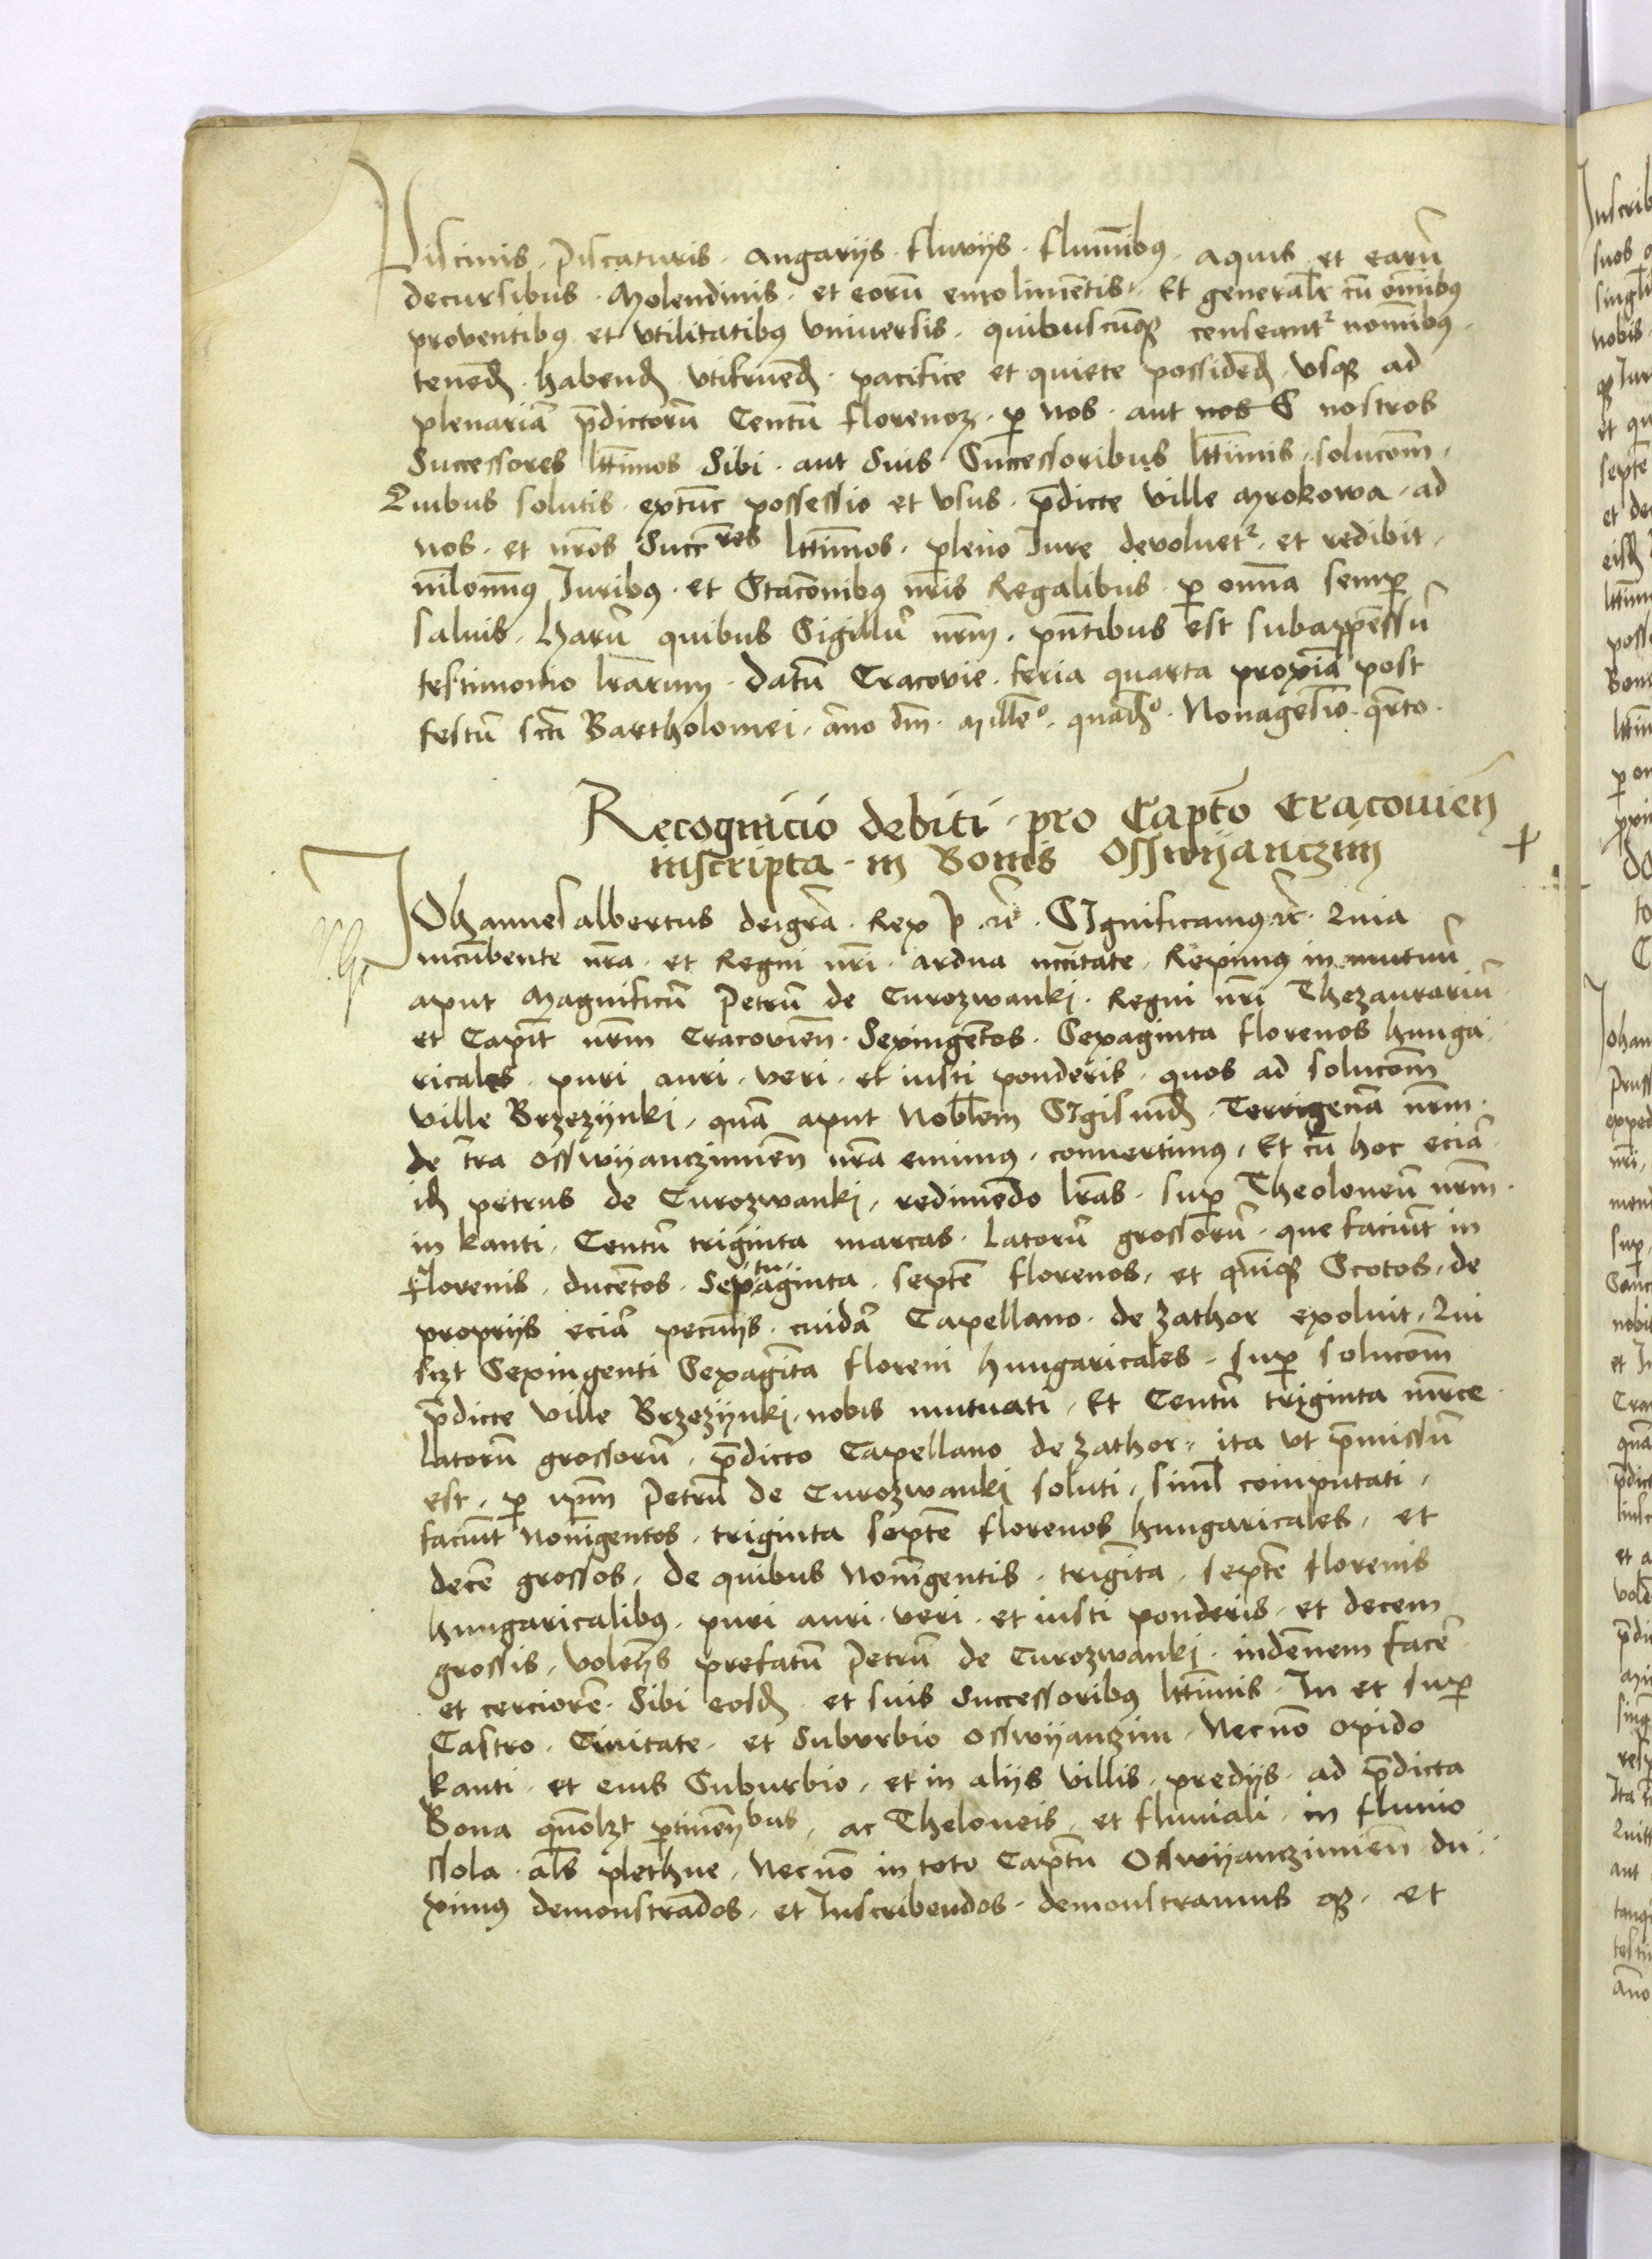 Piscinis. piscaturis. Angarijs. fluvijs. flumībus. aquis et earū
decursibus. Molendinis. et eorū emolimētis. Et generalr̄ cū omībus
proventibus et vtilitatibus vniuersis. quibuscūq censeantr nomībus.
tenēd. habend. vtifruēd. pacifice et quiete possidēd. vsq ad
plenariā p̄dictorū Centū florenoz. p nos. aut nos S nostros
Successores lttīmos Sibi. aut Suis Successoribus lttīmis. solucōm.
Quibus solutis. extūc possessio et vsus. p̄dicte ville Mrokowa. ad
nos. et nrōs Succres lttīmos. pleno Jure devoluetr. et redibit.
nīlomīus Juribus. et Stacōnibus nrīs Regalibus. p omīa semp
saluis. harū quibus Sigillū nrm̄. pn̄tibus est subappēssū
testimonio lrārum. Datū Cracovie. feria quarta proxīa post
festū scti Bartholomei. āno dm̄. Millēo. quadro. Nonagesīo qrto.
Recognicio debiti. pro Capto Cracouieñ
inscripta. in Bonis Osswijanczim
JOhannes albertus deigrā. Rex P. rc̄. SIgnificamus. rc̄. Quia
incūbente nrā. et Regni nrī. ardua nccītate. Repimus in mutuū
aput Magnificū Petrū de Curozwanki. Regni nrī Thezaurariū
et Capit nrm̄ Cracovieñ. Sexingētos. Sexaginta florenos hunga
ricales. puri auri. veri. et iusti ponderis. quos ad solucōm
ville Brzezijnki. quā aput Nobilem SIgismd. Terrigenā nrm̄.
de trā Osswijanczimieñ nrā emimus, conuertimus. Et cū hoc eciā
id petrus de Curozwanki. redimēdo lrās. sup Theoloneū nrm̄.
in kanti. Centū triginta marcas. latorū grossorū. que faciūt in
florenis. ducētos. Septuaginta. septē florenos. et quīq Scotos. de
proprijs eciā pecunijs. cuidā Capellano. de zathor exoluit. Qui
sczt Sexingenti Sexagīta floreni hungaricales. sup solucōm
p̄dicte ville Brzezijnki. nobis mutuati. Et Centū triginta mrce.
latorū grossorū. p̄dicto Capellano de zathor. ita vt p̄missū
est. p ipm̄ Petrū de Curozwanki soluti. siml computati.
faciūt Nonīgentos. triginta septē florenos hungaricales. et
decē grossos. de quibus Nonīgentis. trigīta. septē florenis
hungaricalibus. puri auri. veri. et iusti ponderis. et decem
grossis. volētes prefatū Petrū de Curozwanki. indēnem facē
et cerciorē. Sibi eosd. et suis Successoribus lttīmis. In et sup
Castro. Ciuitate. et Suburbio Osswijanzim. Necnō opido
kanti. et eius Suburbio. et in alijs villis. predijs. ad p̄dicta
Bona quōlzt ptineñbus. ac Theloneis. et fluuiali. in fluuio
ssola. als plethne. Necnō in toto Captū Osswijanczimieñ du
ximus demonstrādos. et Inscribendos. demonstramus q. et